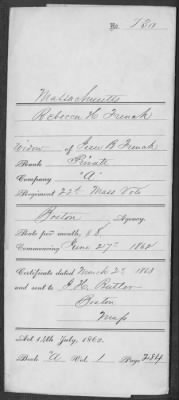 No.
Massachusetts
Rebecca H French
Widow of B French
Rank Private
Company "A"
Regiment 22d Mass Vols
Boston Agency.
Rate per month, $8.
Commencing June 27th 1862
Certificate dated March 2d 1863
and sent to H. Butler
Boston
Mass
Act 14th July, 1862.
Book "A" Vol. 1 Page 284